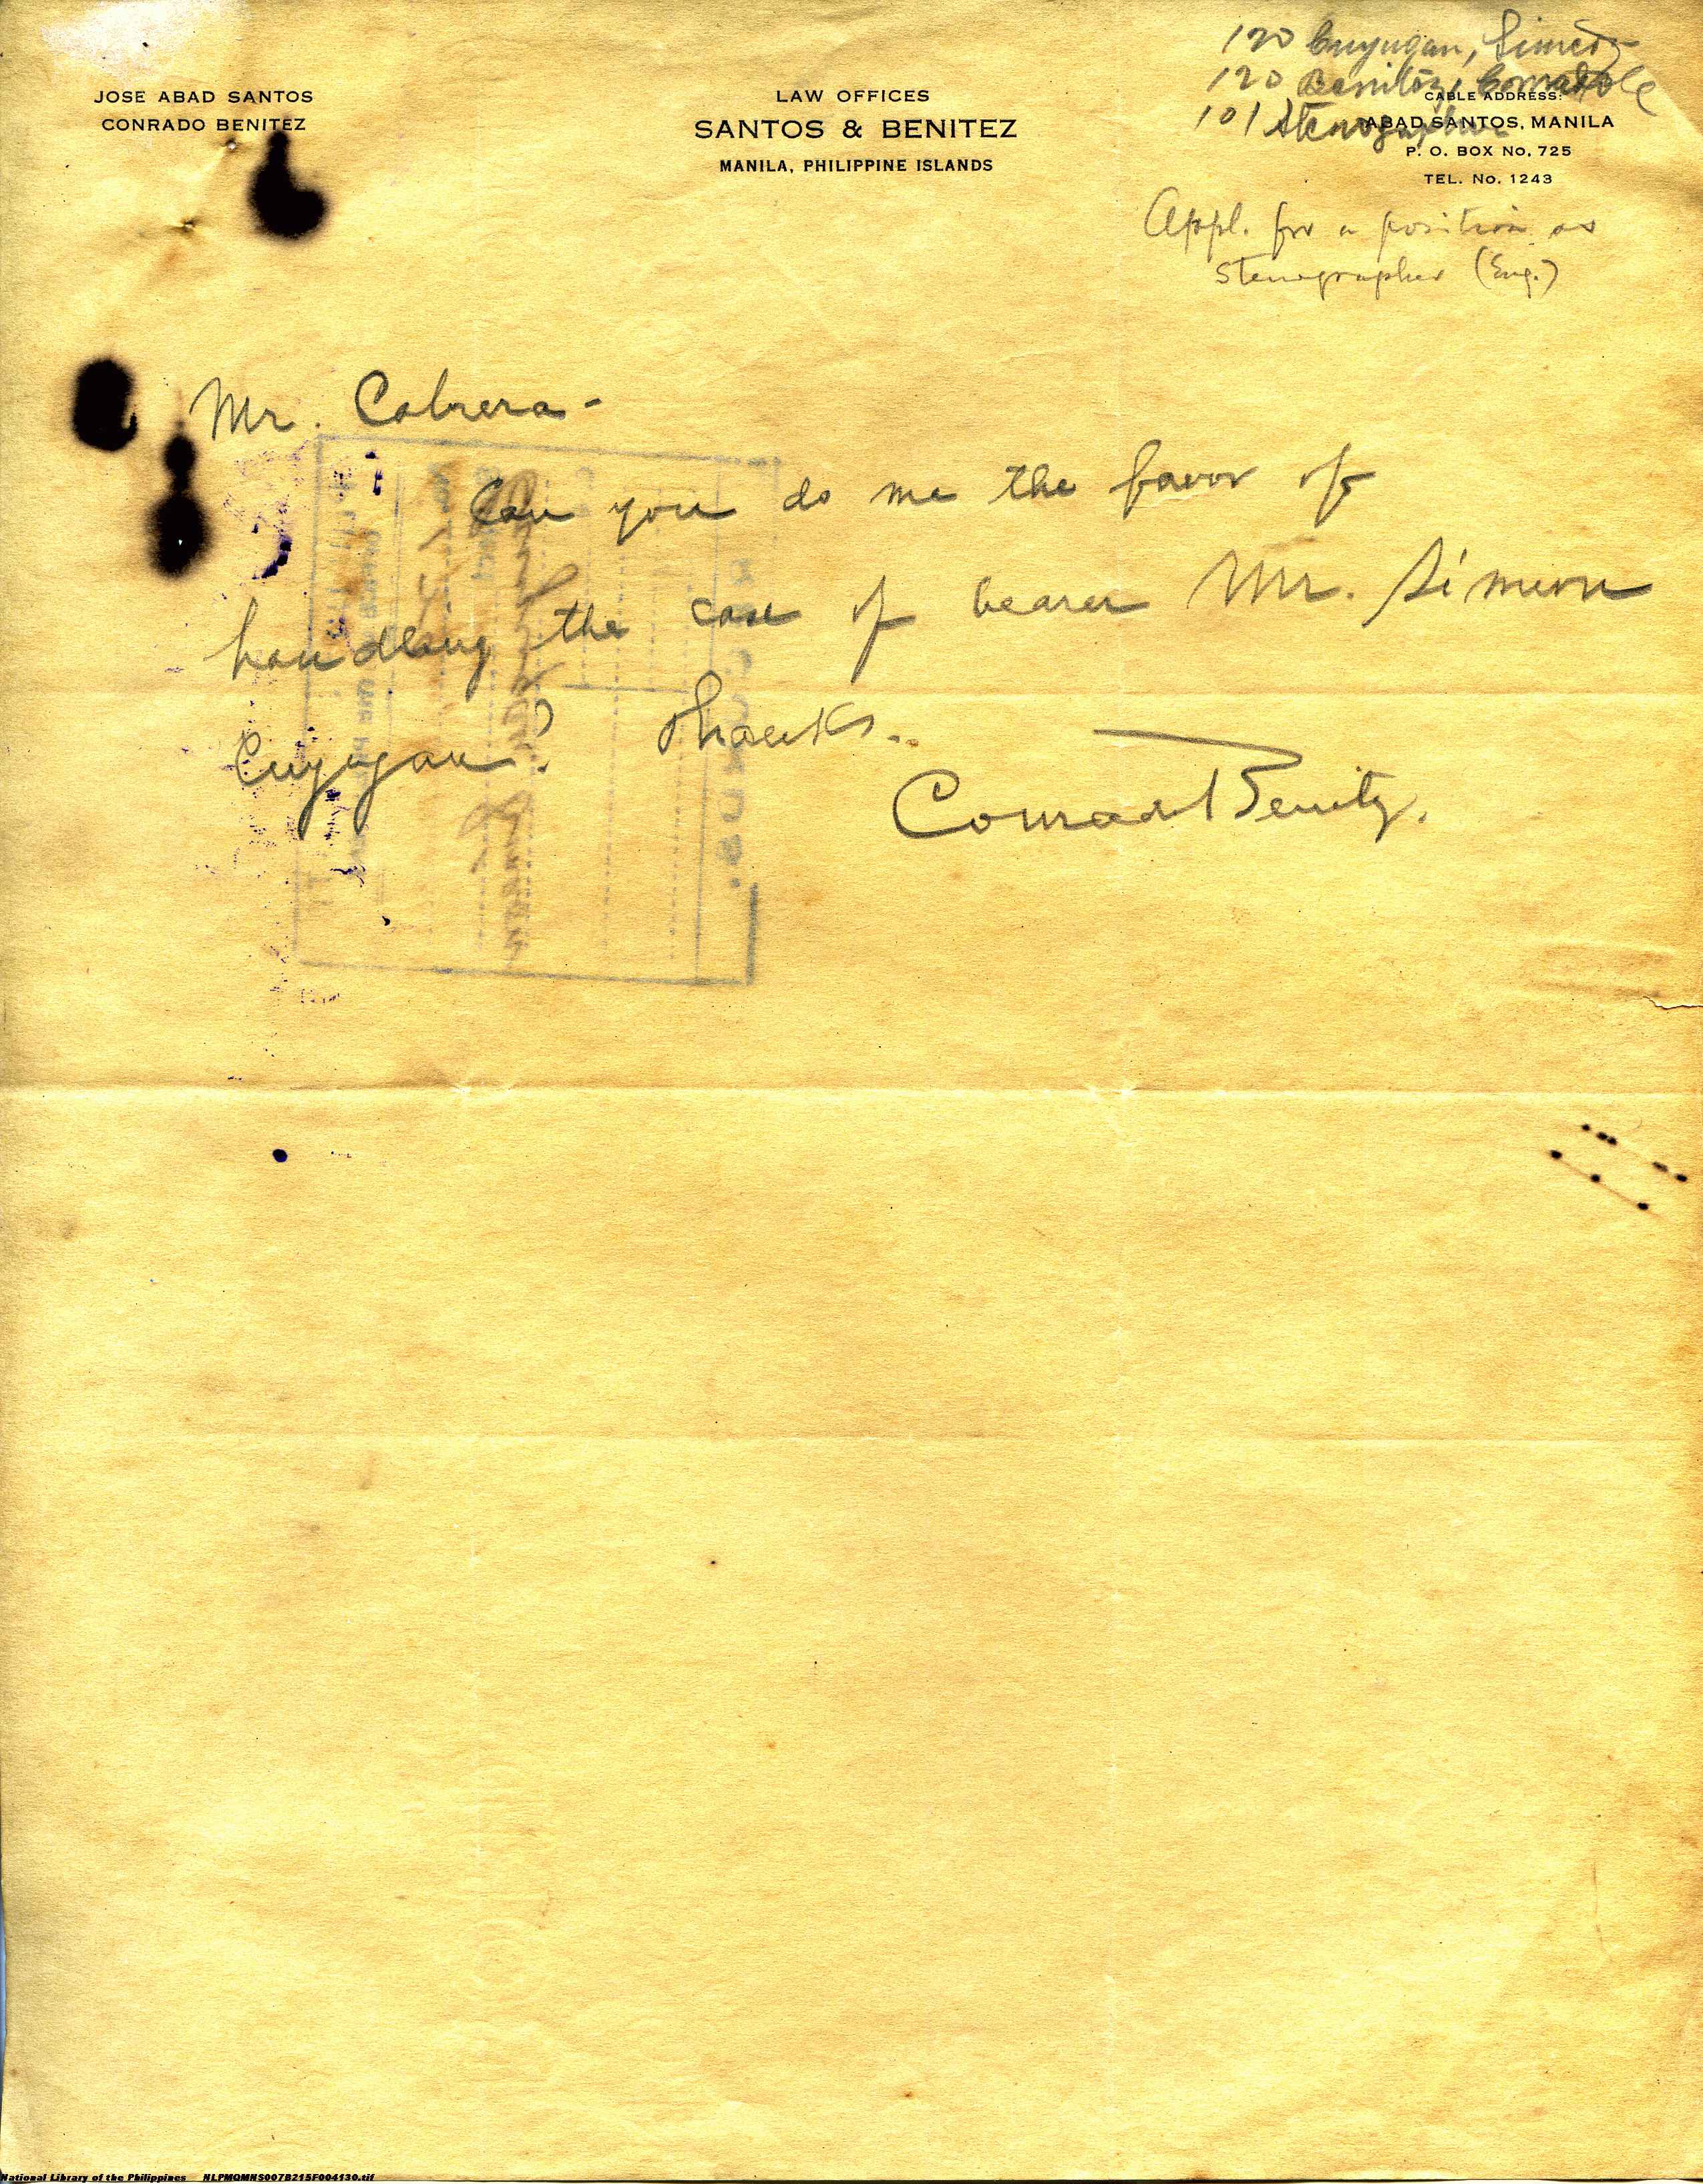 120 Cuyugan, Simeon
120 Benitez, Conrado
101 Stenographer
JOSE ABAD SANTOS
CONRADO BENITEZ
LAW OFFICES
SANTOS & BENITEZ
MANILA, PHILIPPINE ISLANDS
CABLE ADDRESS:
ABAD SANTOS, MANILA
P. O. BOX No. 725
TEL. No. 1243
Appl. for a position as
stenographer (Eng.)
Mr. Cabrera -
Can you do me the favor of
handling the case of bearer Mr. Simeon
Cuyugan? Thanks.
Conrado Benitez.
National Library of the Philippines NLPMQMNS007B215F004130.tif